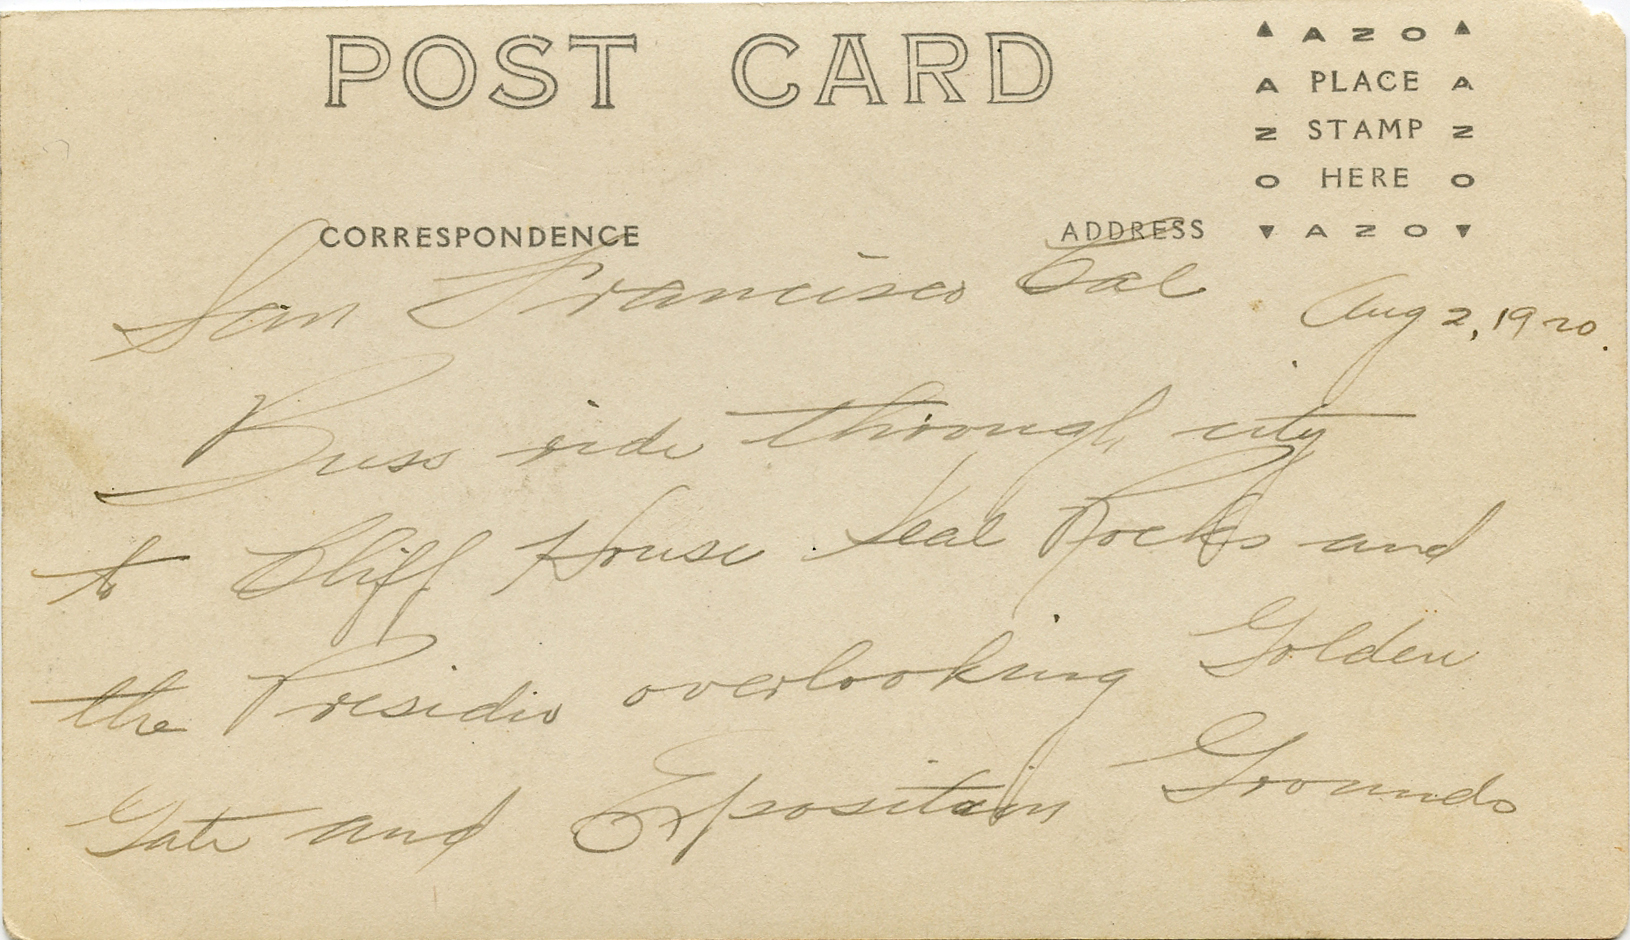 POST CARD
▲ A Z O ▲
A PLACE A
Z STAMP Z
O HERE O
▼ A Z O ▼
CORRESPONDENCE
ADDRESS
San Francisco Cal Aug 2, 1920.
Buss ride through city
to Cliff House Seal Rocks and
the Presidio overlooking Golden
Gate and Exposition Grounds